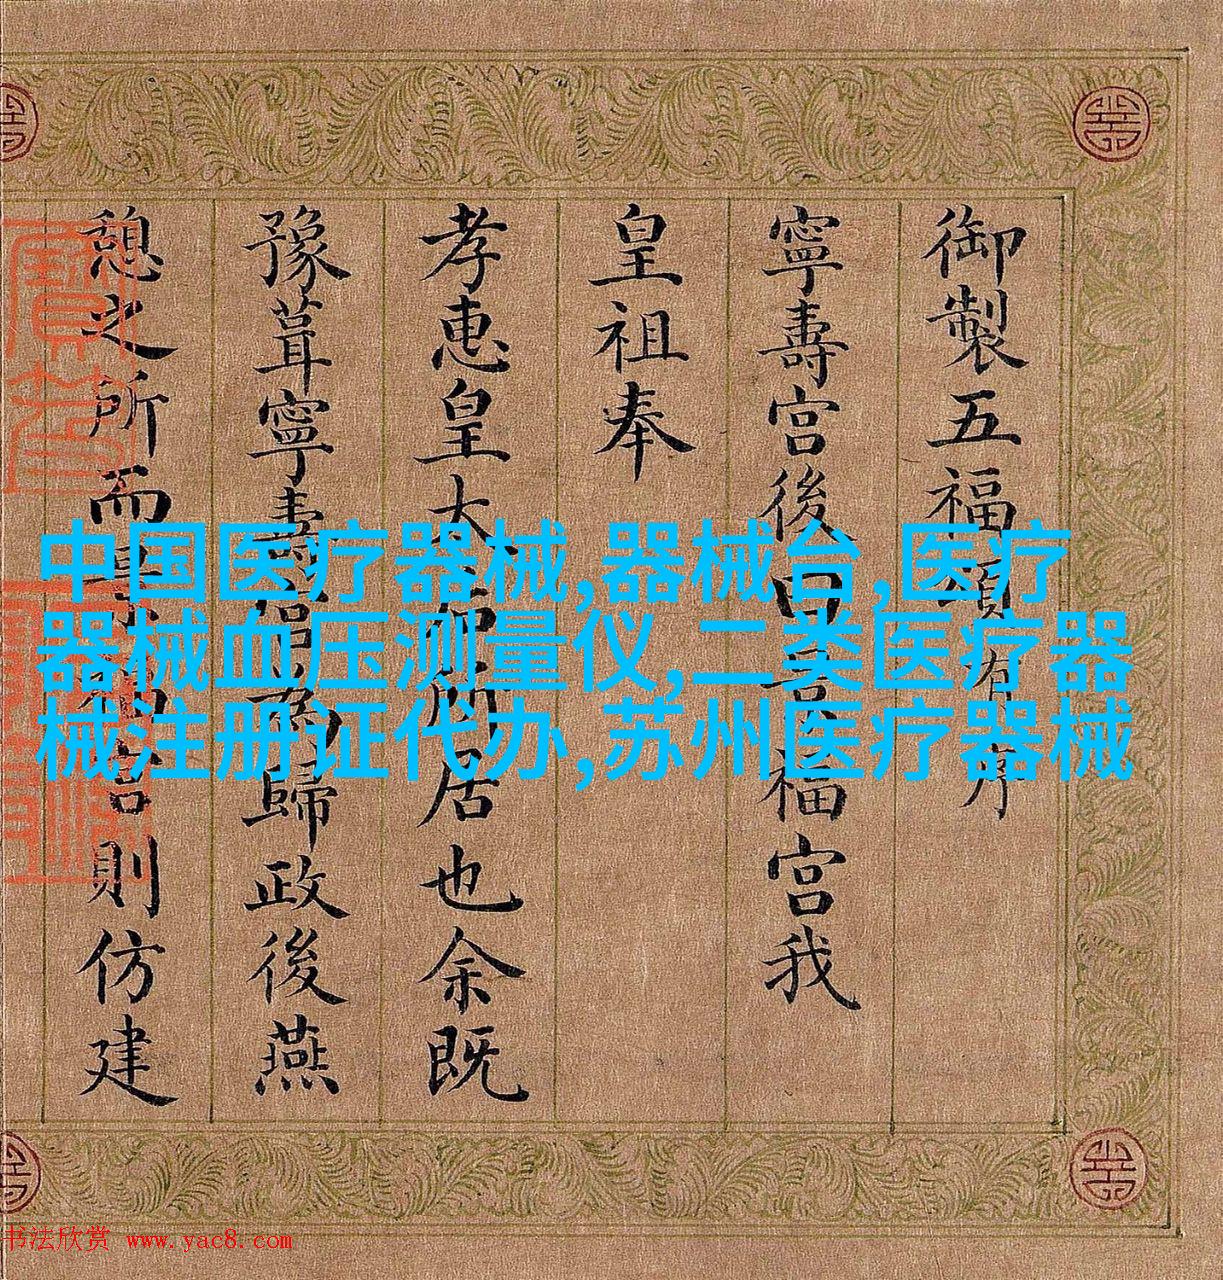 御製五福頌有序
寧壽宫後曰景福宫我
皇祖奉
孝惠皇太后所居也余既
豫葺寧壽宫為歸政後燕
憩之所而景福宫則仿建
中国医疗器械,器械台,医疗
器械血压测量仪,二类医疗器
械注册证代办,苏州医疗器械
书法欣赏 www.yac8.com